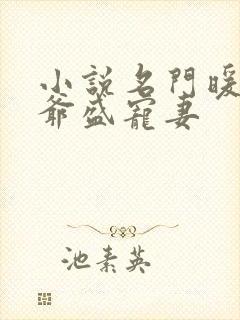 小说名门暖
爷盛宠妻
池素英